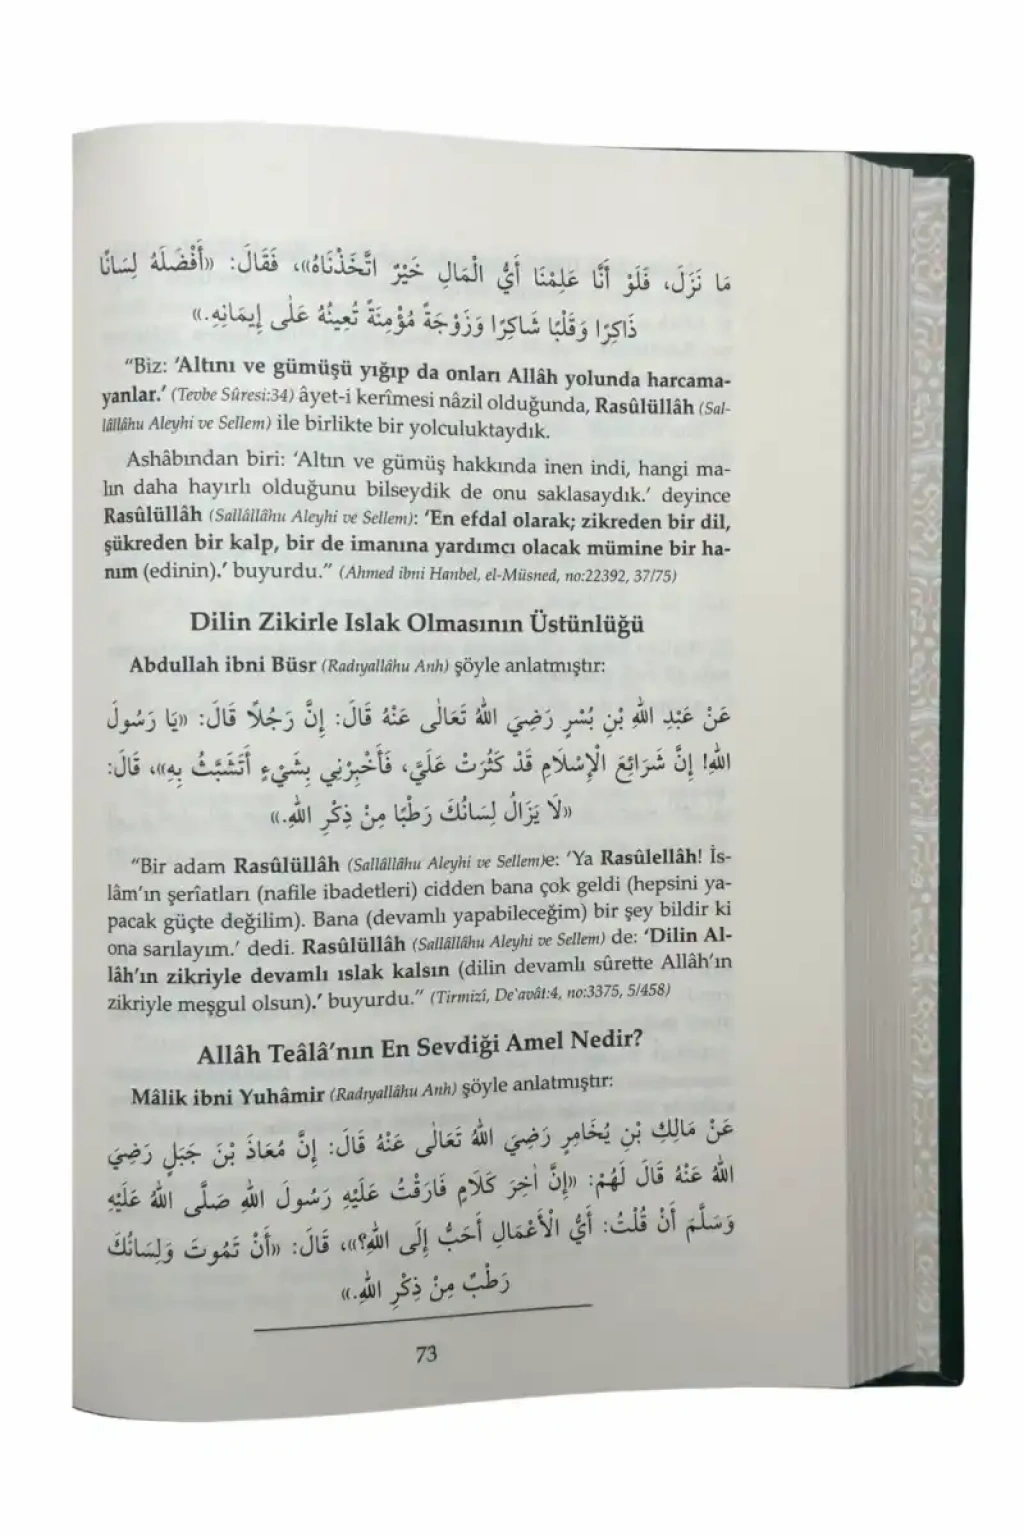 مَا نَزَلَ، فَلَوْ أَنَّا عَلِمْنَا أَيُّ الْمَالِ خَيْرٌ اتَّخَذْنَاهُ»، فَقَالَ: «أَفْضَلَهُ لِسَانًا
ذَاكِرًا وَقَلْبًا شَاكِرًا وَزَوْجَةً مُؤْمِنَةً تُعِينُهُ عَلٰى إِيمَانِهِ.»
"Biz: 'Altını ve gümüşü yığıp da onları Allâh yolunda harcama-
yanlar.' (Tevbe Sûresi:34) âyet-i kerîmesi nâzil olduğunda, Rasûlüllâh (Sal-
lâllâhu Aleyhi ve Sellem) ile birlikte bir yolculuktaydık.
Ashâbından biri: 'Altın ve gümüş hakkında inen indi, hangi ma-
lın daha hayırlı olduğunu bilseydik de onu saklasaydık.' deyince
Rasûlüllâh (Sallâllâhu Aleyhi ve Sellem): 'En efdal olarak; zikreden bir dil,
şükreden bir kalp, bir de imanına yardımcı olacak mümine bir ha-
nım (edinin).' buyurdu." (Ahmed ibni Hanbel, el-Müsned, no:22392, 37/75)
Dilin Zikirle Islak Olmasının Üstünlüğü
Abdullah ibni Büsr (Radıyallâhu Anh) şöyle anlatmıştır:
عَنْ عَبْدِ اللّٰهِ بْنِ بُسْرٍ رَضِيَ اللّٰهُ تَعَالٰى عَنْهُ قَالَ: إِنَّ رَجُلًا قَالَ: «يَا رَسُولَ
اللّٰهِ! إِنَّ شَرَائِعَ الْإِسْلَامِ قَدْ كَثُرَتْ عَلَيَّ، فَأَخْبِرْنِي بِشَيْءٍ أَتَشَبَّثُ بِهِ»، قَالَ:
«لَا يَزَالُ لِسَانُكَ رَطْبًا مِنْ ذِكْرِ اللّٰهِ.»
"Bir adam Rasûlüllâh (Sallâllâhu Aleyhi ve Sellem)e: 'Ya Rasûlellâh! İs-
lâm'ın şerîatları (nafile ibadetleri) cidden bana çok geldi (hepsini ya-
pacak güçte değilim). Bana (devamlı yapabileceğim) bir şey bildir ki
ona sarılayım.' dedi. Rasûlüllâh (Sallâllâhu Aleyhi ve Sellem) de: 'Dilin Al-
lâh'ın zikriyle devamlı ıslak kalsın (dilin devamlı sûrette Allâh'ın
zikriyle meşgul olsun).' buyurdu." (Tirmizî, De'avât:4, no:3375, 5/458)
Allâh Teâlâ'nın En Sevdiği Amel Nedir?
Mâlik ibni Yuhâmir (Radıyallâhu Anh) şöyle anlatmıştır:
عَنْ مَالِكِ بْنِ يُخَامِرٍ رَضِيَ اللّٰهُ تَعَالٰى عَنْهُ قَالَ: إِنَّ مُعَاذَ بْنَ جَبَلٍ رَضِيَ
اللّٰهُ عَنْهُ قَالَ لَهُمْ: «إِنَّ اٰخِرَ كَلَامٍ فَارَقْتُ عَلَيْهِ رَسُولَ اللّٰهِ صَلَّى اللّٰهُ عَلَيْهِ
وَسَلَّمَ أَنْ قُلْتُ: أَيُّ الْأَعْمَالِ أَحَبُّ إِلَى اللّٰهِ؟»، قَالَ: «أَنْ تَمُوتَ وَلِسَانُكَ
رَطْبٌ مِنْ ذِكْرِ اللّٰهِ.»
73